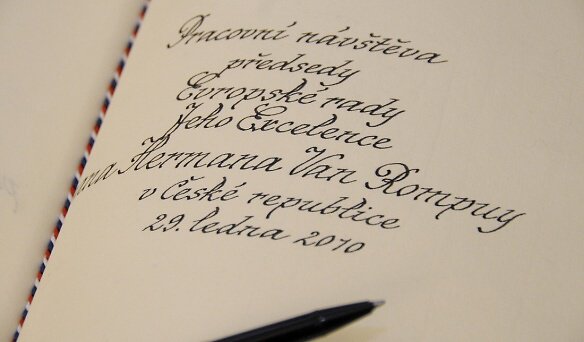 Pracovní návštěva
předsedy
Evropské rady
Jeho Excelence
Hermana Van Rompuy
v České republice
29. ledna 2010